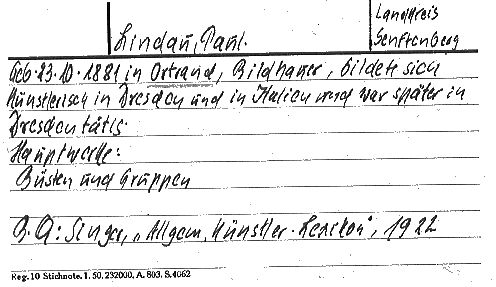 Landkreis
Senftenberg
Lindau, Paul.
Geb. 23.10.1881 in Ortrand, Bildhauer, bildete sich
Künstlerisch in Dresden und in Italien und war später in
Dresden tätig.
Hauptwerke:
Büsten und Gruppen
B. Q: Singer, „Allgem. Künstler-Lexikon", 1922
Reg. 10 Stichnote. 1. 50. 232000, A. 803. S. 4062